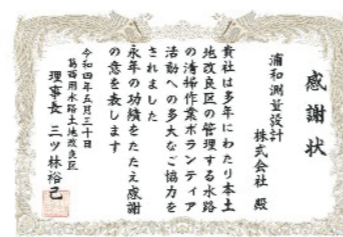 感謝状
浦和測量設計
株式会社 殿
貴社は多年にわたり本土
地改良区の管理する水路
の清掃作業ボランティア
活動への多大なご協力を
されました
永年の功績をたたえ感謝
の意を表します
令和四年五月三十日
葛西用水路土地改良区
理事長 三ツ林裕己